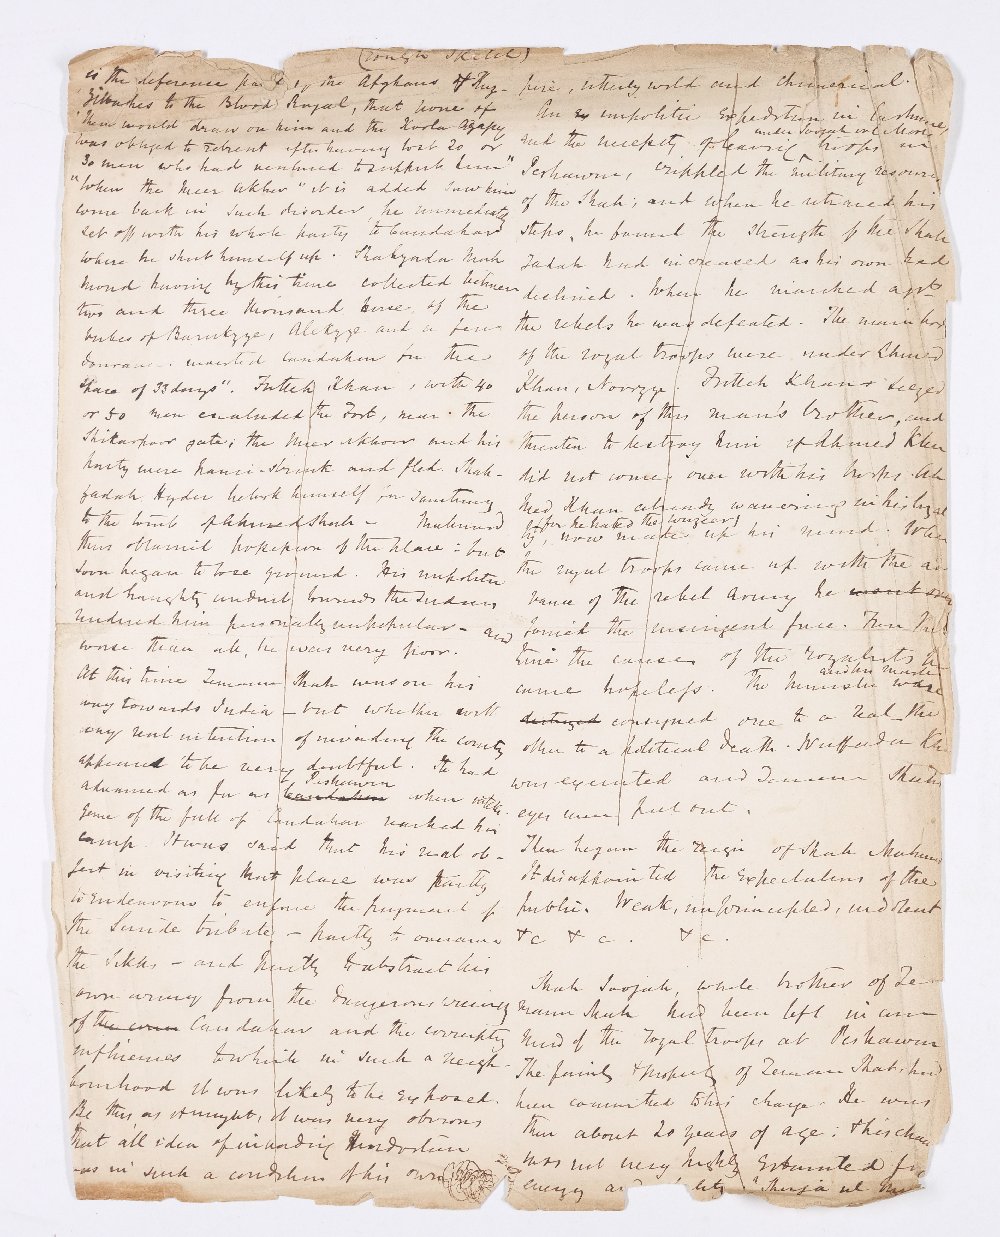 (rough Sketch)
is the deference paid by the Afghans & Kuz-
zilbashes to the Blood Royal, that none of
them would draw on him and the Koola Agassy
was obliged to retreat after having lost 20 or
30 men who had ventured to support him"
"When the Meer Akhor" it is added "saw him
come back in such disorder, he immediately
set off with his whole party to Candahar
where he shut himself up. Shahzada Mah
moud having by this time collected between
two and three thousand horse, of the
tribes of Barukzye, Alekzye and a few
Douranees invested Candahar for the
space of 33 days". Futteh Khan, with 40
or 50 men escaladed the Fort, near the
Shikarpoor gate; the Meer Akhoor and his
party were panic-struck and fled. Shah-
zadah Hyder betook himself for sanctuary
to the tomb of Ahmed Shah - Mahmood
thus obtained possession of the place: but
soon began to lose ground. His impolitic
and haughty conduct towards the Duranees
rendered him personally unpopular - and
worse than all, he was very poor.
At this time Zemaun Shah was on his
way towards India - but whether with
any real intention of invading the country
appeared to be very doubtful. He had
advanced as far as Candahar Peshawur when intelli-
gence of the fall of Candahar reached his
camp. It was said that his real ob-
ject in visiting that place was partly
to endeavour to enforce the payment of
the Sinde tribute - partly to overawe
the Sikhs - and partly to abstract his
own army from the dangerous vicinity
of the Candahar and the corrupting
influences to which in such a neigh-
bourhood it was likely to be exposed.
Be this as it might, it was very obvious
that all idea of invading Hindostan
was in such a condition of his own
pire, utterly wild and chimerical.
An impolitic expedition in Cashmere,
and the necessity of leaving troops under Soojah ool Moolk in
Peshawur, crippled the military resources
of the Shah; and when he retraced his
steps, he found the strength of the Shah
Zadah had increased as his own had
declined. When he marched agst
the rebels he was defeated. The main body
of the royal troops were under Ahmed
Khan, Noorzye. Futteh Khan seized
the person of this man's brother, and
threaten to destroy him if Ahmed Khan
did not come over with his troops. Ah
med Khan already wavering in his loyal
ty, (for he hated the wuzeer) now made up his mind. When
the royal troops came up with the ad
vance of the rebel army he went over
joined the insurgent force. From that
time the cause of the royalists be
came hopeless. The Minister and his master were
destroyed consigned one to a real, the
other to a political death. Wuffadar Kh
was executed and Zemaun Shah's
eyes were put out.
Then began the reign of Shah Mahmud
It disappointed the expectations of the
public. Weak, unprincipled, indolent
&c &c. &c.
Shah Soojah, whole brother of Ze-
maun Shah had been left in com
mand of the royal troops at Peshawur
The family & property of Zemaun Shah had
been committed to his charge. He was
then about 20 years of age: & his char
was not very highly estimated for
energy and "Shuja ul